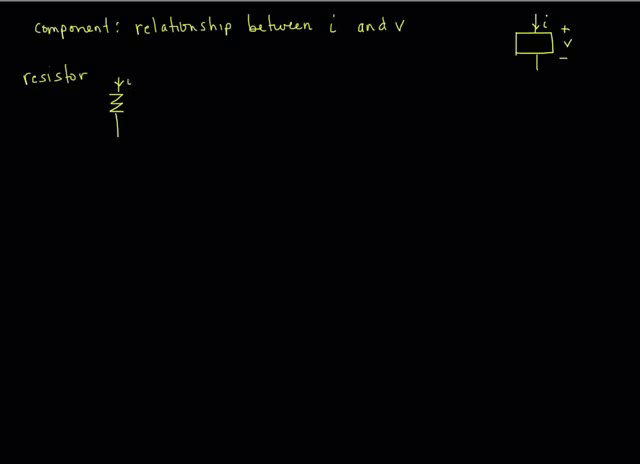 component: relationship between i and v
i
+
v
−
resistor
i